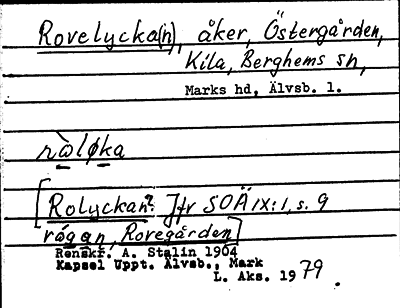 Rovelycka(n), åker, Östergården,
Kila, Berghems sn,
Marks hd, Älvsb. l.
rὼlø̀ka
[Rolyckan? Jfr SOÄ IX:1, s. 9
rågan, Rovegården]
Renskr. A. Stalin 1904
Kapsel Uppt. Älvsb., Mark
L. Aks. 1979.